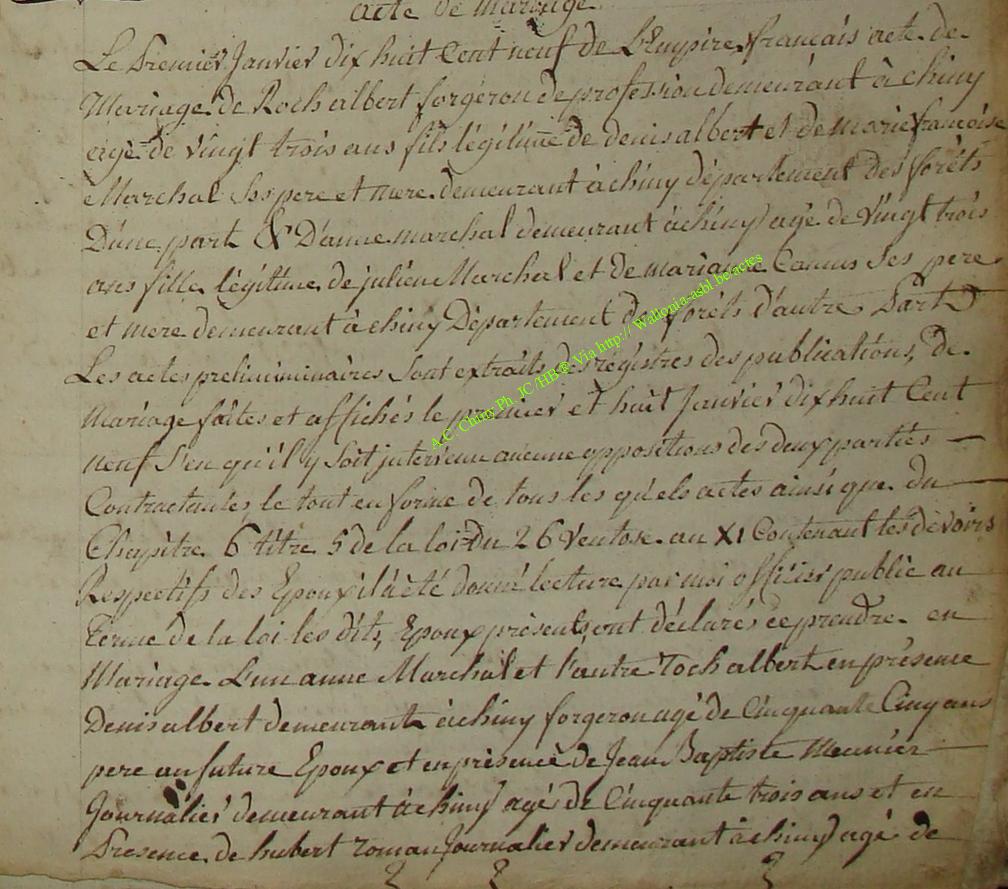 acte de mariage
Le Premier Janvier dix huit Cent neuf de L'Empire français acte de
Mariage de Roch albert forgeron de profession demeurant à chiny
agé de vingt trois ans fils légitime de denis albert et de marie françoise
Marchal ses pere et mere demeurant à chiny département des forêts
D'une part & D'anne marchal demeurant à chiny agé de vingt trois
ans fille légitime de julien Marchal et de marianne Camus Ses pere
et mere demeurant à chiny Département des forêts d'autre Part
Les actes preliminminaires Sont extraits des régistres des publications, de
Mariage faites et affichés le premier et huit Janvier dix huit Cent
neuf S'en qu'il y Soit intervenu aucune oppositions des deux parties —
Contractantes, le tout en forme de tous les quels actes ainsi que du —
Chapitre 6 titre 5 de la loi Du 26 Ventose an XI Contenant les devoirs
Respectifs des Epoux il à été donné lecture par moi officier public au
Terme de la loi les dits, Epoux présents, ont déclarés ce prendre en
Mariage L'un anne Marchal et l'autre roch albert en présence
Denis albert demeurant à chiny forgeron agé de Cinquante Cinq ans
pere au future Epoux et en présence de Jean Baptiste Meunier —
Journalier demeurant à chiny agé de Cinquante trois ans et en
Presence de hubert roman Journalier demeurant à chiny agé de
A.C. Chiny Ph. JC /HB® Via http:// Wallonia-asbl.be/actes